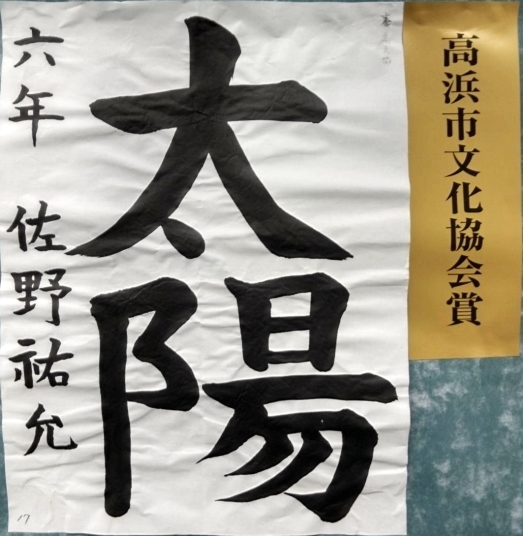 高浜市文化協会賞
太陽
六年 佐野祐允
17